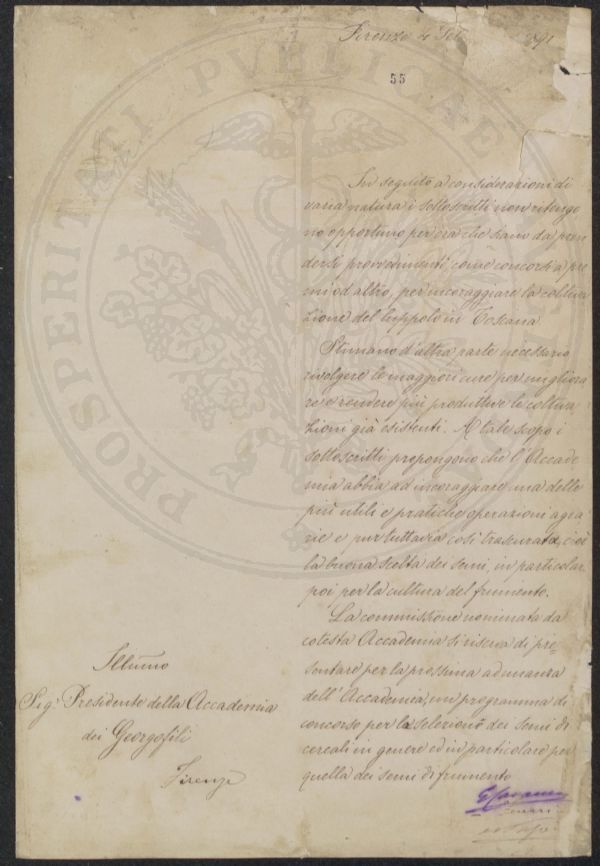 Firenze 4
55
In seguito a considerazioni di
varia natura i sottoscritti non ritengo
no opportuno per ora che siano da pren
dersi provvedimenti, come concorsi a pre
mi od altro, per incoraggiare la coltiva
zione del luppolo in Toscana.
Stimano d'altra parte necessario
rivolgere le maggiori cure per migliora
re e rendere più produttive le coltiva
zioni già esistenti. A tale scopo i
sottoscritti propongono che l'Accade
mia abbia ad incoraggiare una delle
più utili e pratiche operazioni agra
rie e pur tuttavia così trascurata, cioè
la buona scelta dei semi, in particolar
poi per la cultura del frumento.
La commissione nominata da
cotesta Accademia si riserva di pre
sentare per la prossima adunanza
dell'Accademia, un programma di
concorso per la selezione dei semi di
cereali in genere ed in particolare per
quella dei semi di frumento
Illumo
Sigr Presidente della Accademia
dei Georgofili
Firenze
PROSPERITATI PUBLICAE